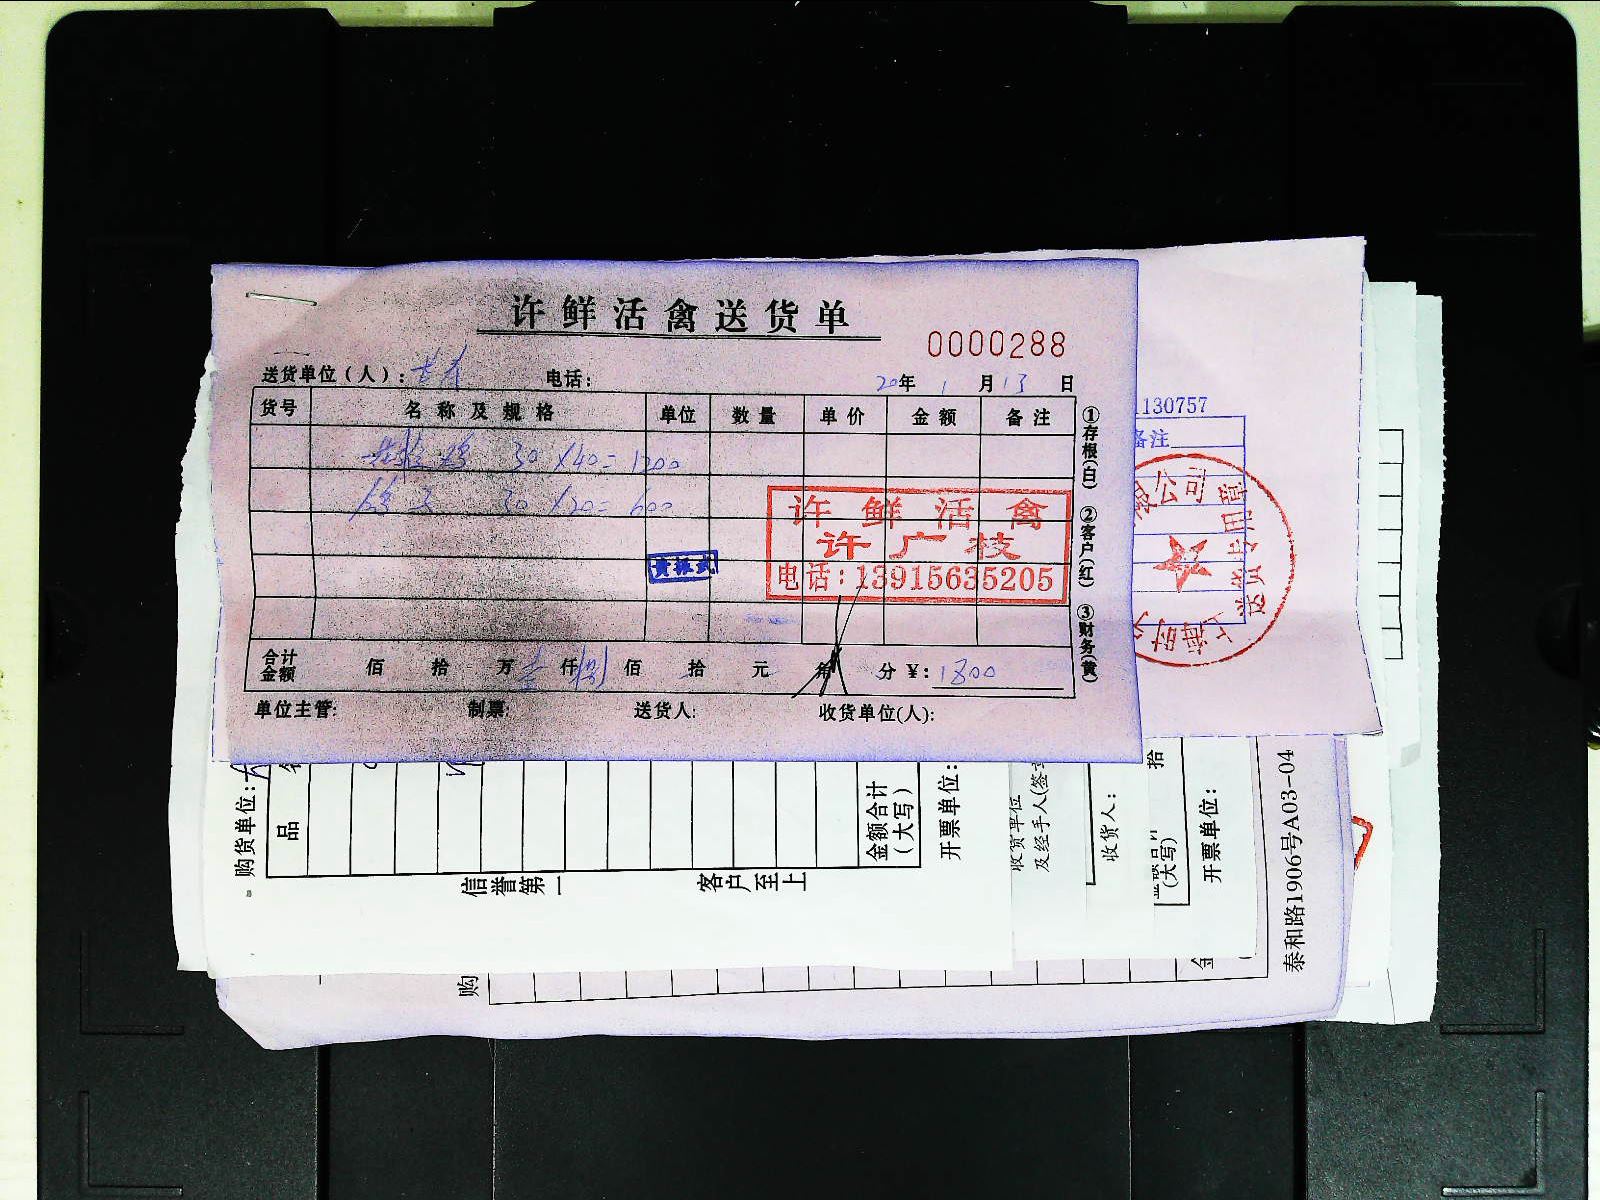 许鲜活禽送货单
0000288
送货单位（人）： 电话：
20年 1 月 13 日
货号 名称及规格 单位 数量 单价 金额 备注
鸡 30 ×40= 1200
30 ×20= 600
许鲜活禽
许广枝
电话：13915635205
合计金额 佰 拾 万 壹 仟 捌 佰 拾 元 角 分 ¥：1800
单位主管： 制票： 送货人： 收货单位(人)：
①存根(白) ②客户(红) ③财务(黄)
1130757
备注
公司
送货专用章
上海
购货单位：
品 名
金额合计
（大写）
开票单位：
信誉第一 客户至上
收货单位
及经手人(签
收货人：
拾
(大写)
开票单位：
泰和路1906号A03-04
购
金